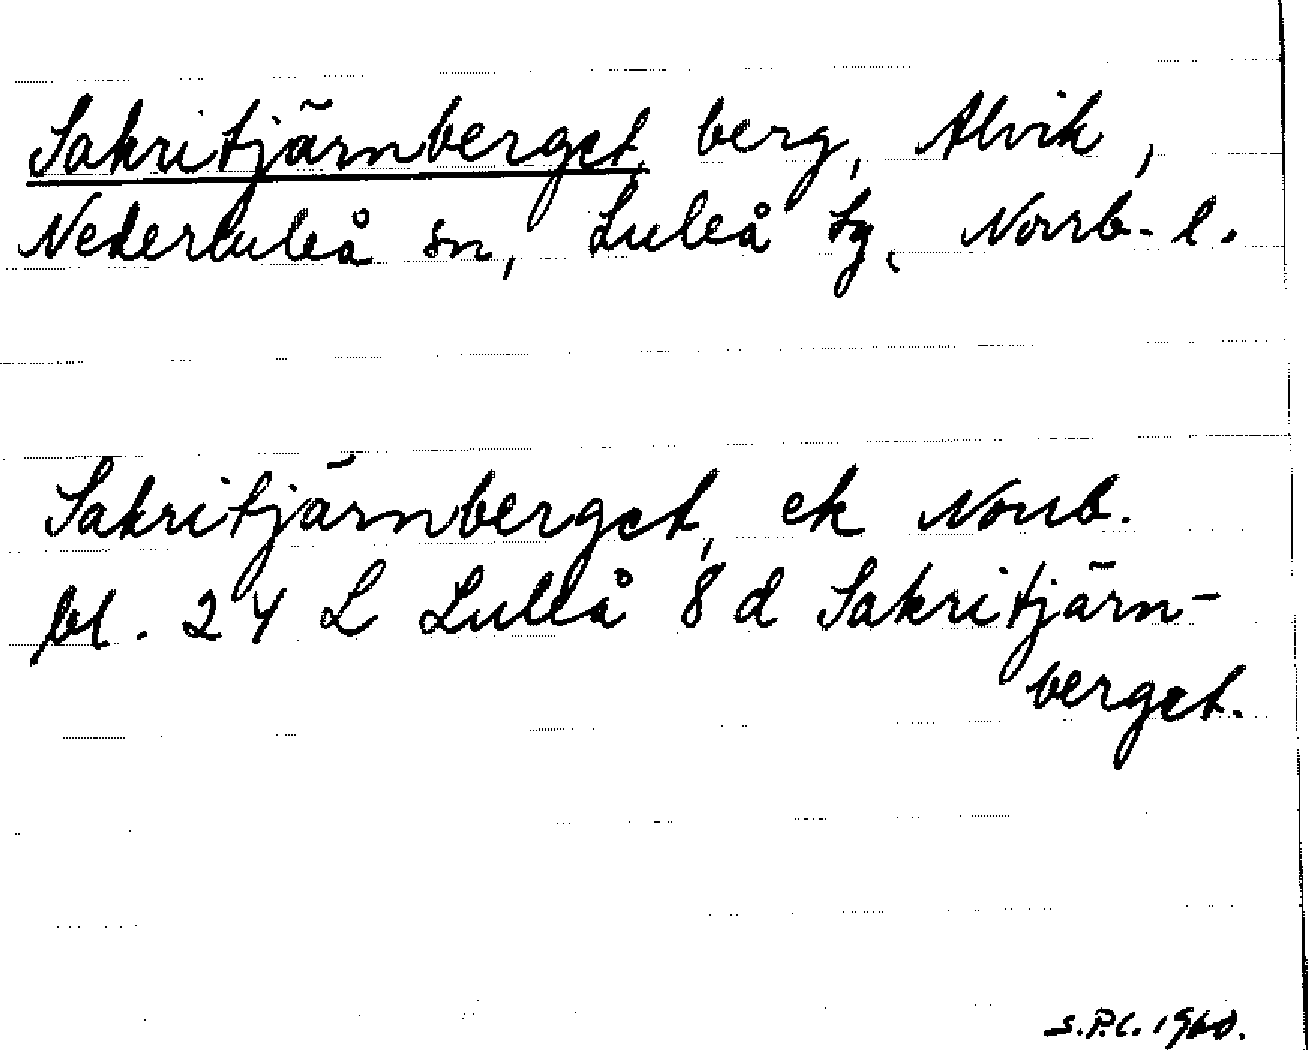 Sakritjärnberget, berg, Alvik,
Nederluleå sn, Luleå tg, Norrb. l.
Sakritjärnberget, ek Norrb.
bl. 24 L Luleå 8 d Sakritjärn-
berget.
S.P.C. 1960.